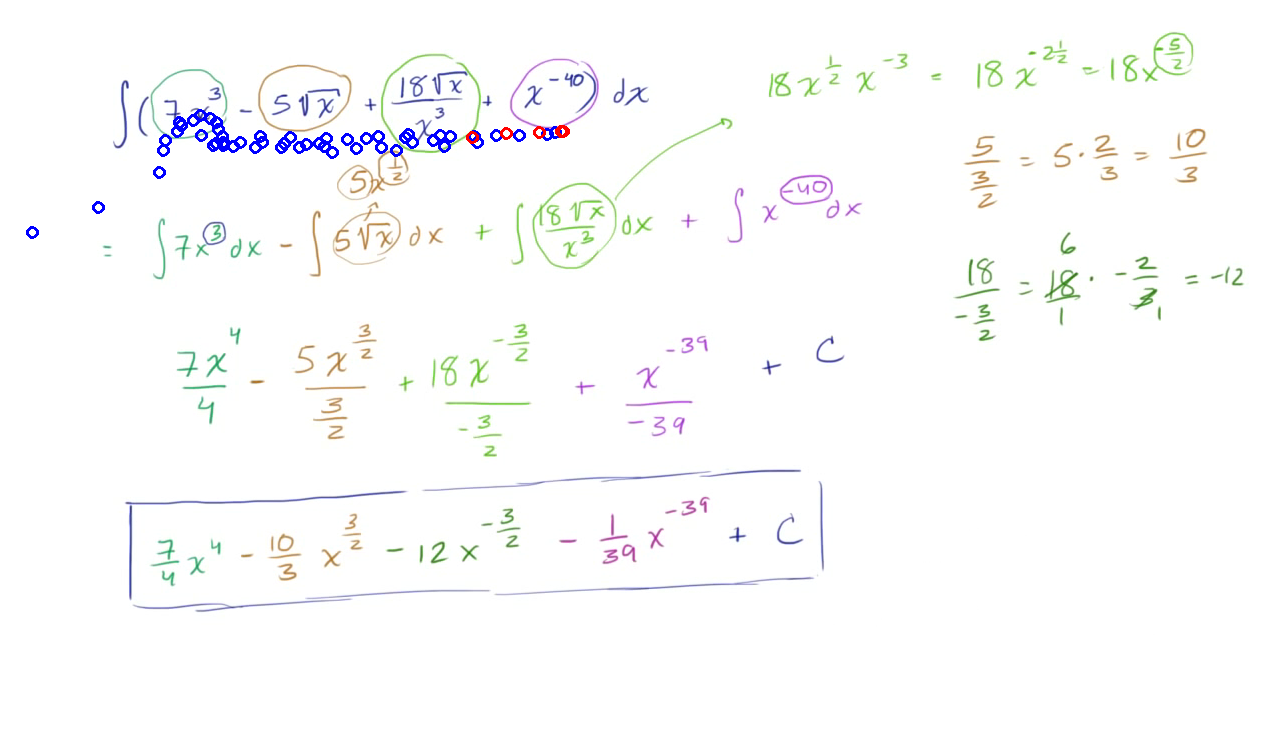 ∫(7x³ - 5√x + 18√x/x³ + x⁻⁴⁰) dx
5x^(1/2)
= ∫7x³dx - ∫5√x dx + ∫18√x/x³ dx + ∫x⁻⁴⁰dx
7x⁴/4 - 5x^(3/2)/(3/2) + 18x^(-3/2)/(-3/2) + x⁻³⁹/-39 + C
7/4 x⁴ - 10/3 x^(3/2) - 12x^(-3/2) - 1/39 x⁻³⁹ + C
18x^(1/2) x⁻³ = 18x^(-2 1/2) = 18x^(-5/2)
5/(3/2) = 5·2/3 = 10/3
6
18/(-3/2) = 18/1 · -2/3 = -12
1